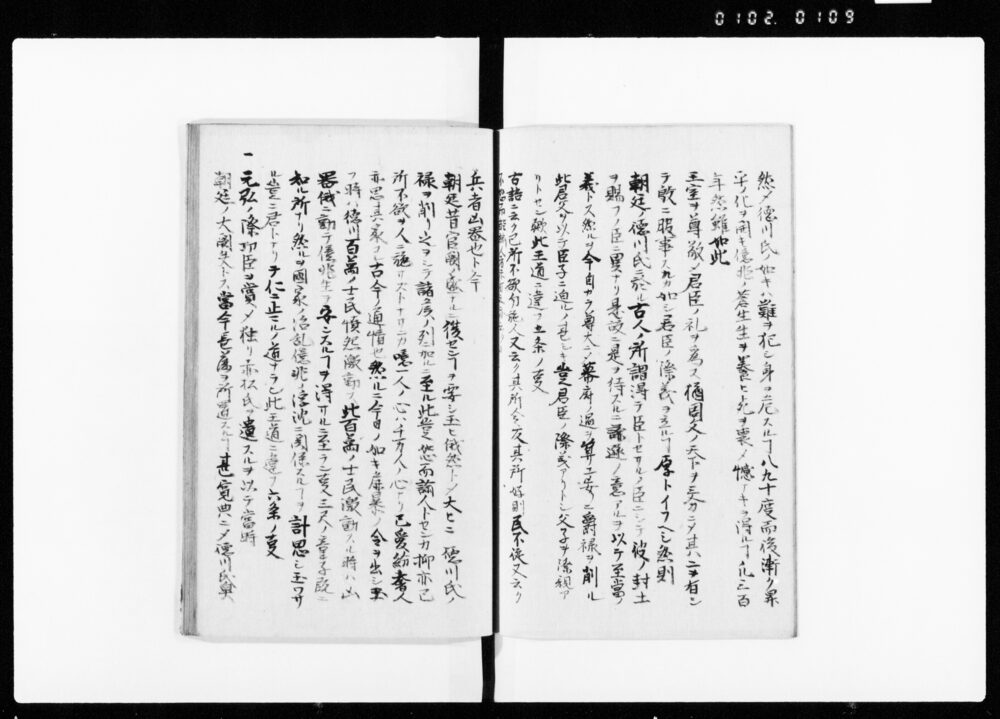 0102. 0109
然シテ徳川氏ノ如キハ難ヲ犯シ身ヲ危スル丁八九十度而後漸ク昇
平ノ化ヲ開キ億兆ノ蒼生生ヲ養ヒ死ヲ喪ノ憾ナキヲ得ル丁凡三百
年然雖如此
王室ヲ尊敬シ君臣ノ礼ヲ為ス猶周文ノ天下ヲ三分ニシ其ハ二ヲ有シ
テ殷ニ服事スルカ如シ君臣ノ際義ヲ立ル丁厚トイフヘシ然則
朝廷ノ徳川氏ニ於ル古人ノ所謂得テ臣トセサルノ臣ニシテ彼ノ封土
ヲ賜フノ臣ニ異ナリ是故ニ是ヲ待スルニ謙遜ノ意アルヲ以テ至當ノ
義トス然ルヲ今自カラ尊大シ幕府ノ過ヲ算ヘ妄ニ爵禄ヲ削ル
此君父ヲ以テ臣子ニ迫ルノ甚シキ豈君臣ノ際義アリトシ父子ヲ際親ア
リトセン哉此王道ニ違フ五条ノ変
古語ニ云ク己所不欲勿施人又云ク其所令反其所好則民不従又云ク
兵者凶器也ト今
朝廷昔官國ノ盛ナルニ復セン丁ヲ要シ玉ヒ俄然トシ大ヒニ徳川氏ノ
禄ヲ削リ之ヲシテ諸侯ノ列ニ加ルニ至ル此豈恕而諭人トセンカ抑亦己
所不欲ヲ人ニ施サストナサンカ噫一人ノ心ハ千万人ノ心ナリ己愛紛奢人
亦思其家トシ古今ノ通情也然ルニ今日ノ如キ暴ノ令ヲ出シ玉
フ時ハ徳川百萬ノ士民憤怨激動ス此百萬ノ士民激動スル時ハ凶
器俄ニ動テ億兆生ヲ安ンスル丁ヲ得サルニ至ラン変三尺ノ童子既ニ
知ル所ナリ然ヲ國家ノ治乱億兆ノ浮沈ニ関係スル丁ヲ計思シ玉ハサ
ル豈ニ君トナリテ仁ニ止ルノ道ナラン此王道ニ違フ六条ノ変
一 元弘ノ際功臣ヲ賞シ独リ赤松氏ヲ遺スルヲ以テ當時
朝廷ノ大闕失トス當今長藩ヲ所遇スル丁甚寛典ニシ徳川氏與